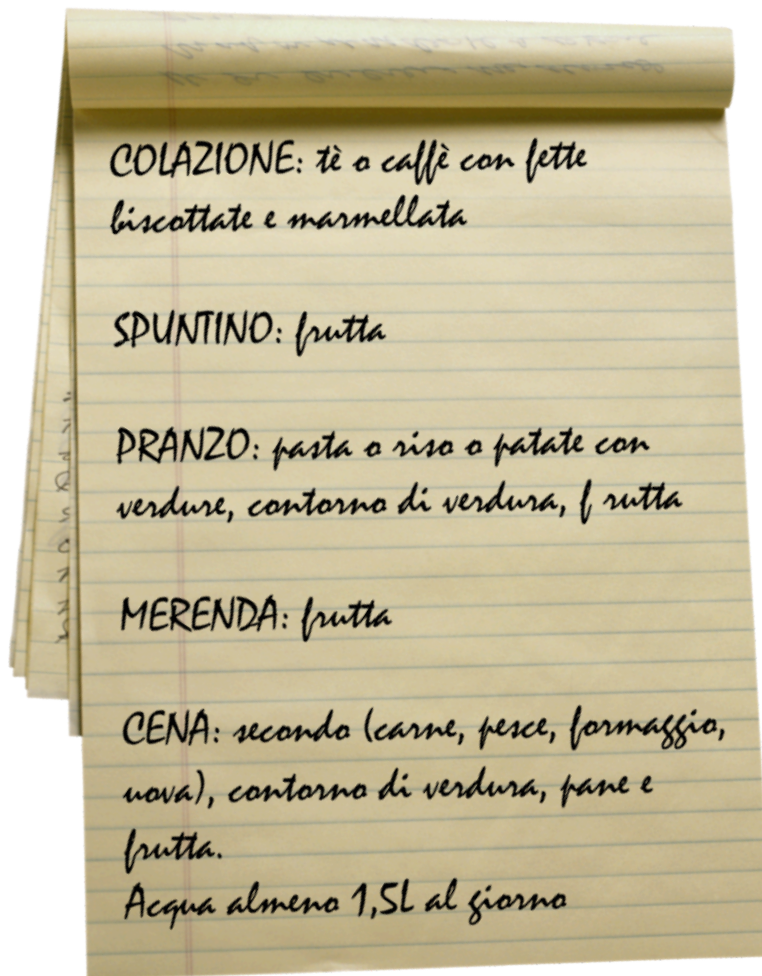 COLAZIONE: tè o caffè con fette
biscottate e marmellata
SPUNTINO: frutta
PRANZO: pasta o riso o patate con
verdure, contorno di verdura, f rutta
MERENDA: frutta
CENA: secondo (carne, pesce, formaggio,
uova), contorno di verdura, pane e
frutta.
Acqua almeno 1,5L al giorno